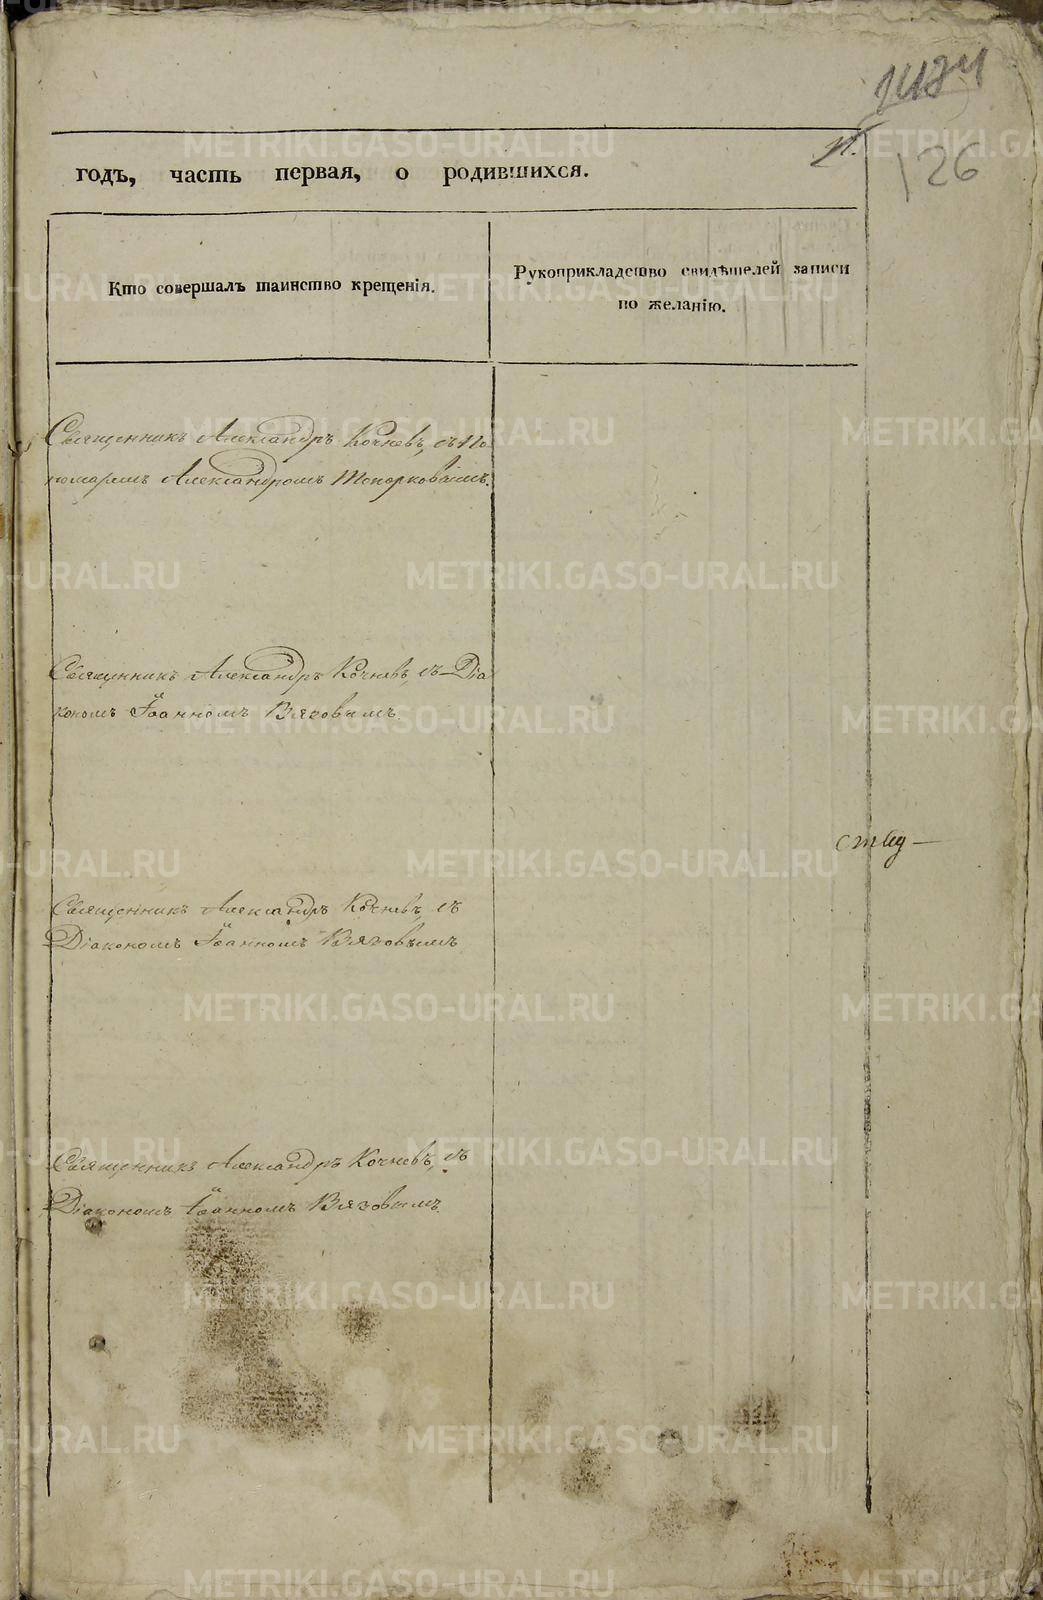 126
годъ, часть первая, о родившихся.
Кто совершалъ таинство крещенія.
Рукоприкладство свидѣтелей записи
по желанію.
Священникъ Александръ Кочневъ, съ По
номаремъ Александромъ Топорковымъ.
Священникъ Александръ Кочневъ, съ Діа
кономъ Іоанномъ Вязовымъ.
Священникъ Александръ Кочневъ, съ
Діакономъ Іоанномъ Вязовымъ
Священникъ Александръ Кочневъ, съ
Діакономъ Іоанномъ Вязовымъ.
METRIKI.GASO-URAL.RU